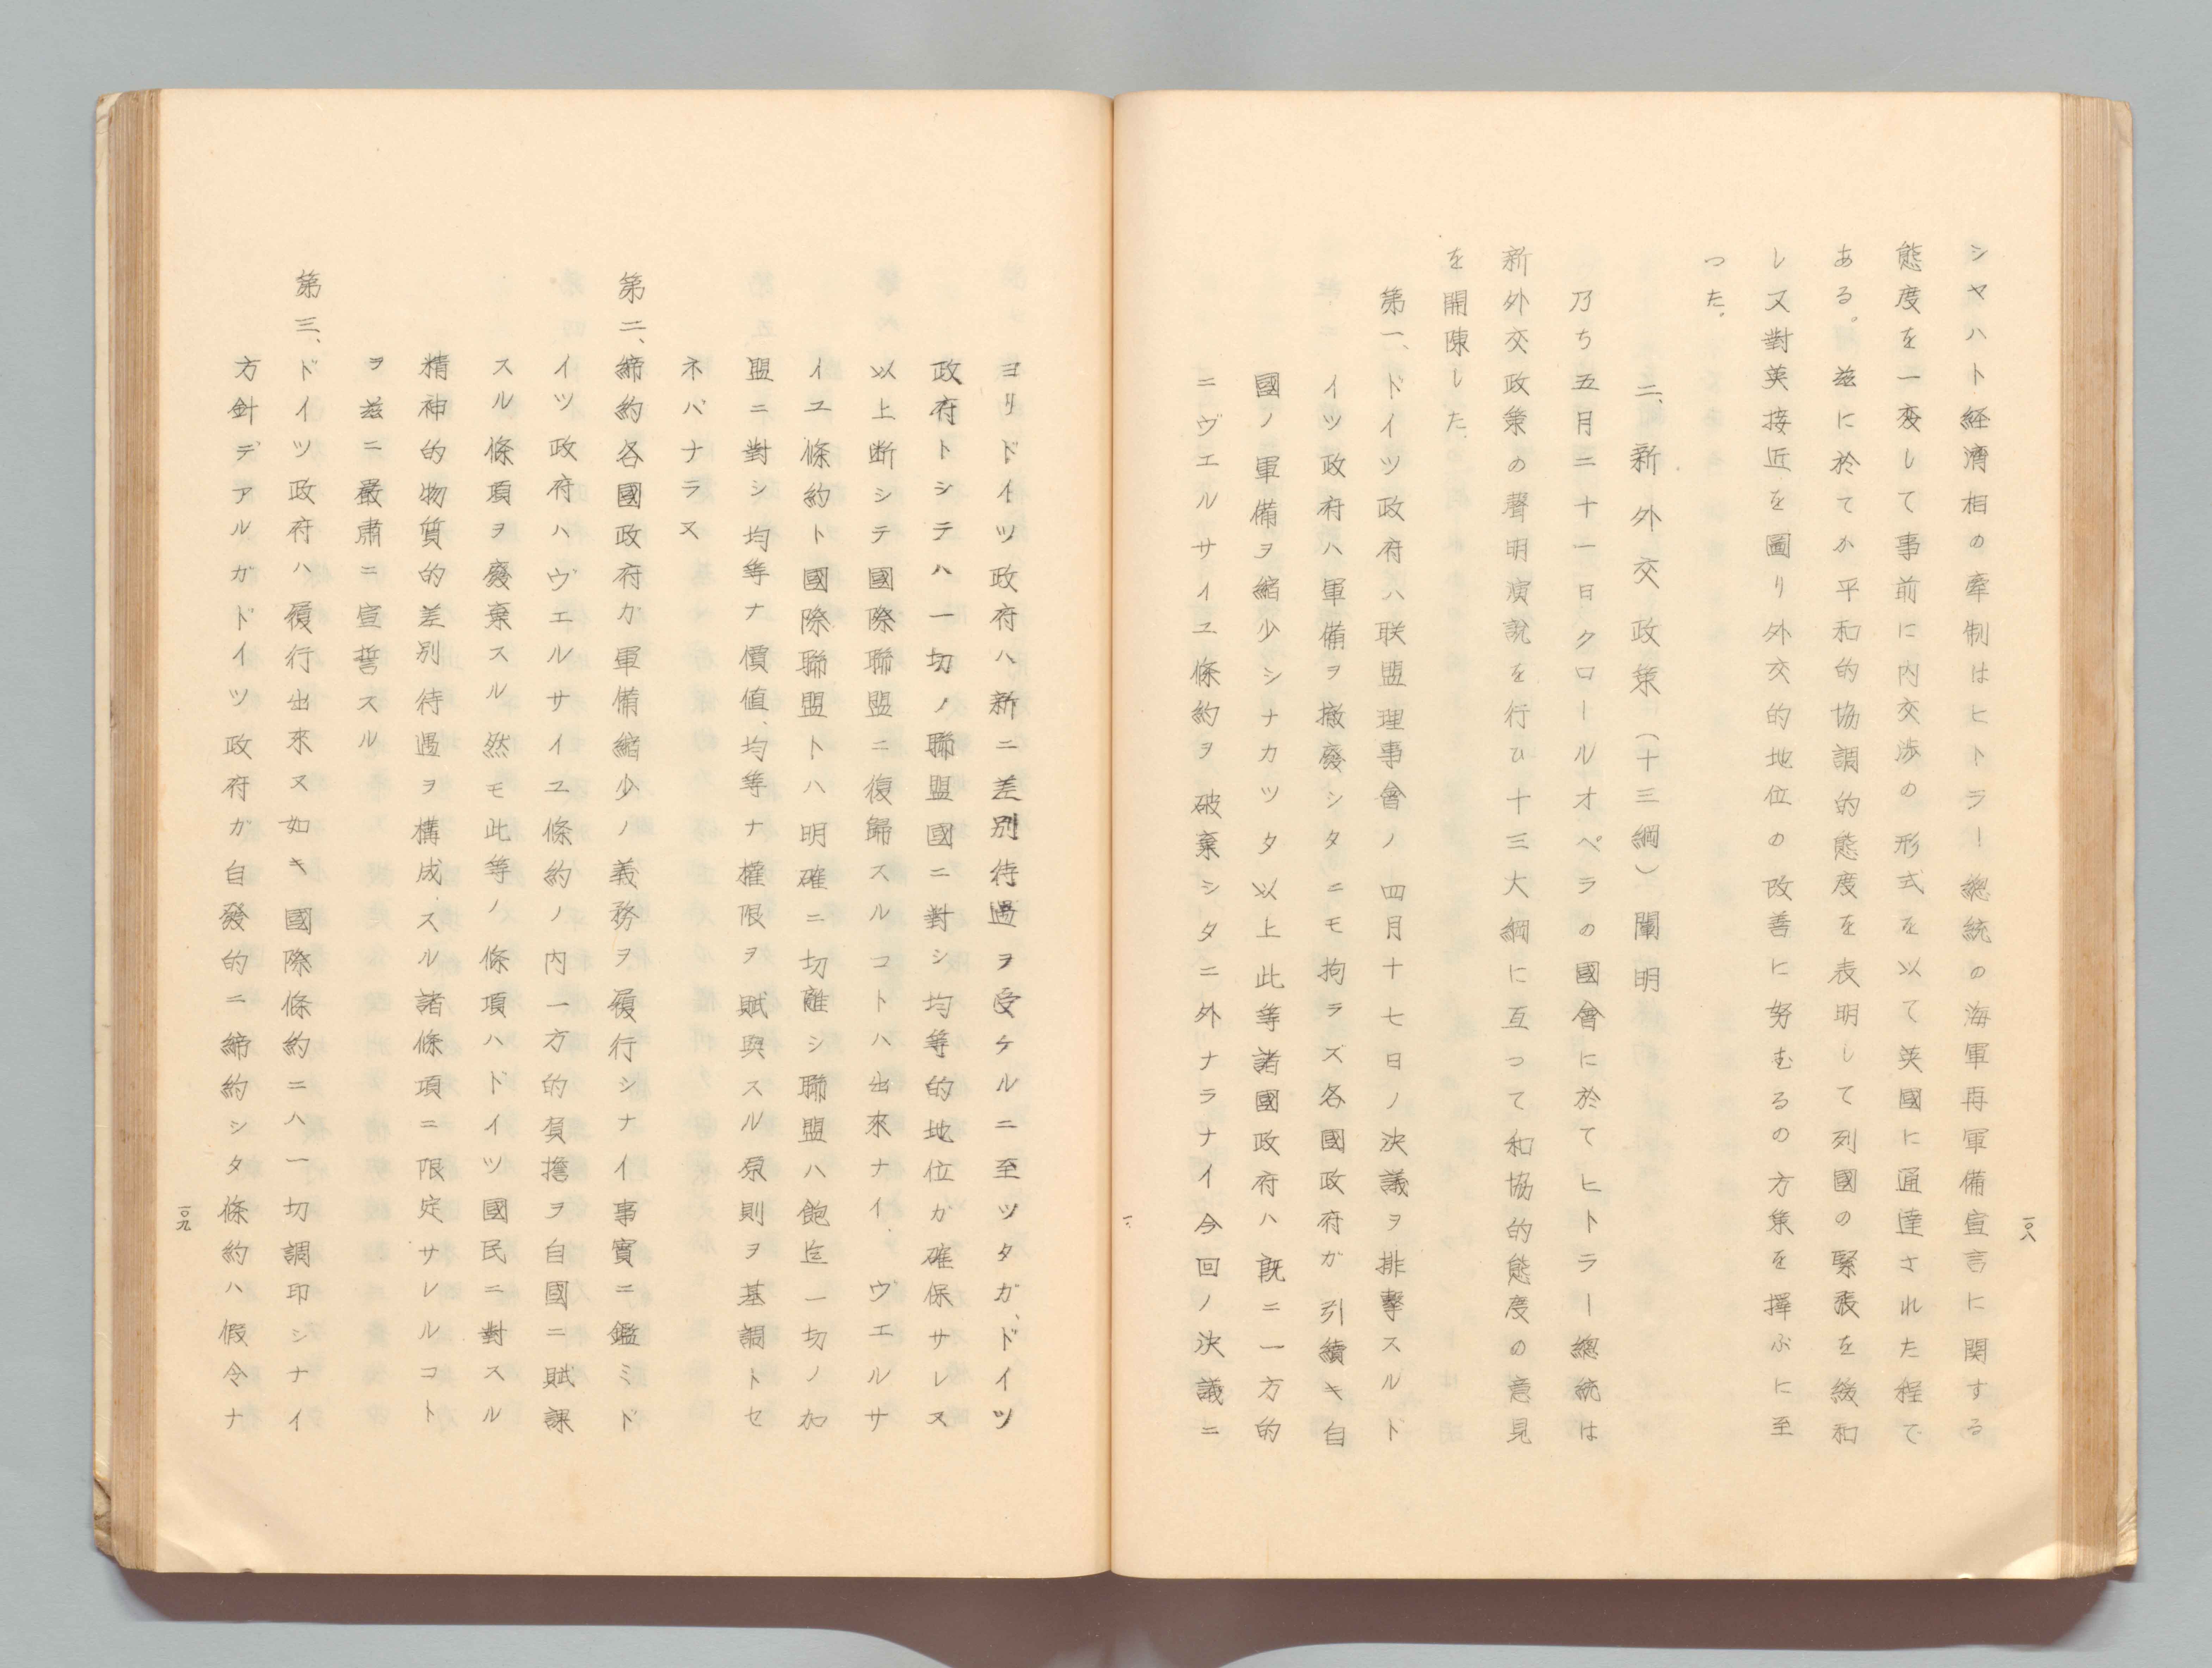 シヤハト経濟相の牽制はヒトラー總統の海軍再軍備宣言に関する
態度を一変して事前に内交渉の形式を以て英國に通達された程で
ある。茲に於てか平和的協調的態度を表明して列國の緊張を緩和
し又對英接近を圖り外交的地位の改善に努むるの方策を擇ぶに至
つた。
二、新外交政策（十三綱）闡明
乃ち五月二十一日クロールオペラの國會に於てヒトラー總統は
新外交政策の聲明演説を行ひ十三大綱に亙つて和協的態度の意見
を開陳した。
第一、ドイツ政府ハ联盟理事會ノ四月十七日ノ決議ヲ排撃スルド
イツ政府ハ軍備ヲ撤廢シタニモ拘ラズ各國政府ガ引續キ自
國ノ軍備ヲ縮少シナカツタ以上此等諸國政府ハ既ニ一方的
ニヴエルサイユ條約ヲ破棄シタニ外ナラナイ今回ノ決議ニ
一〇八
ヨリドイツ政府ハ新ニ差別待遇ヲ受ケルニ至ツタガ、ドイツ
政府トシテハ一切ノ聯盟國ニ對シ均等的地位ガ確保サレヌ
以上断シテ國際聯盟ニ復歸スルコトハ出來ナイ．ヴエルサ
イユ條約ト國際聯盟トハ明確ニ切離シ聯盟ハ飽迄一切ノ加
盟ニ對シ均等ナ價値、均等ナ權限ヲ賦與スル原則ヲ基調トセ
ネバナラヌ
第二、締約各國政府ガ軍備縮少ノ義務ヲ履行シナイ事實ニ鑑ミド
イツ政府ハヴエルサイユ條約ノ内一方的負擔ヲ自國ニ賦課
スル條項ヲ廢棄スル然モ此等ノ條項ハドイツ國民ニ對スル
精神的物質的差別待遇ヲ構成スル諸條項ニ限定サレルコト
ヲ茲ニ嚴肅ニ宣誓スル
第三、ドイツ政府ハ履行出來ヌ如キ國際條約ニハ一切調印シナイ
方針デアルガドイツ政府ガ自發的ニ締約シタ條約ハ假令ナ
一〇九